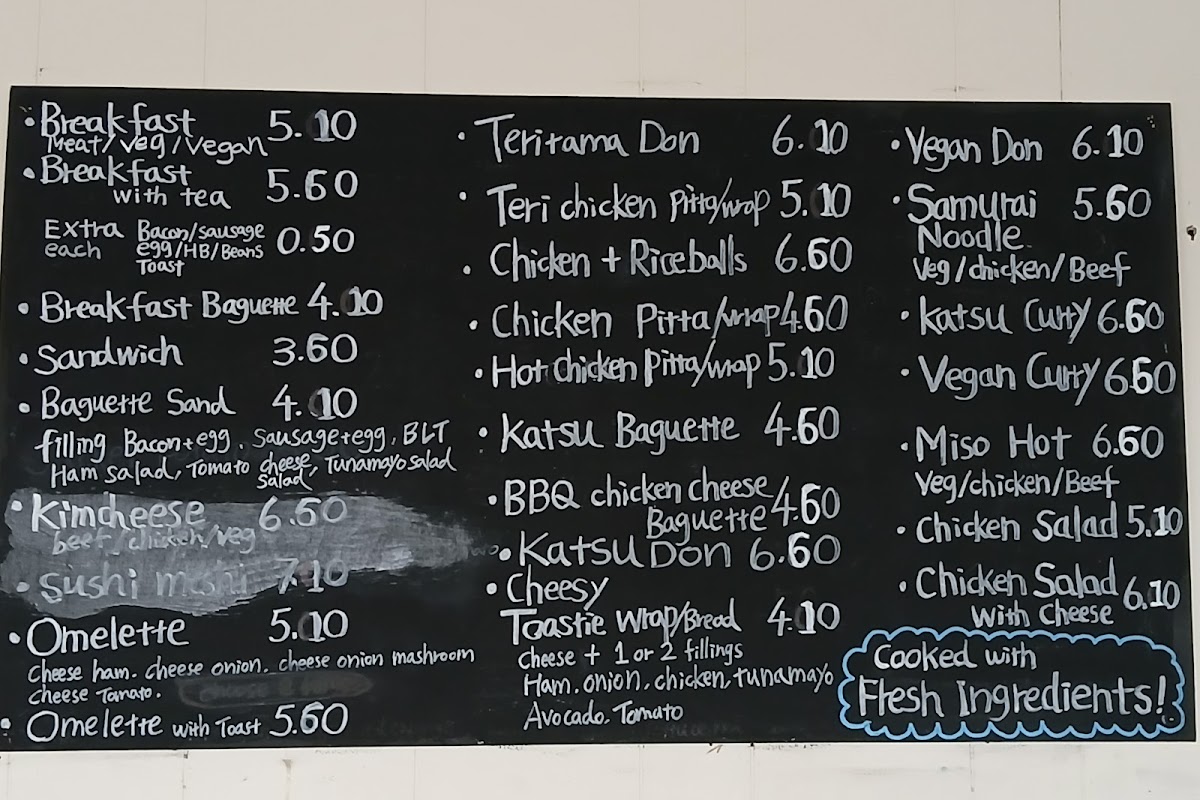 • Breakfast 5.10
Meat/Veg/Vegan
• Breakfast
with tea 5.60
Extra Bacon/sausage
each egg/HB/Beans 0.50
Toast
• Breakfast Baguette 4.10
• Sandwich 3.60
• Baguette Sand 4.10
filling Bacon+egg, Sausage+egg, BLT
Ham salad, Tomato cheese, Tunamayo salad
salad
• Kimcheese 6.60
beef/chicken/veg
• Sushi meshi 7.10
• Omelette 5.10
Cheese ham. cheese onion. cheese onion mashroom
cheese Tamato.
• Omelette with Toast 5.60
• Teritama Don 6.10
• Teri chicken Pitta/wrap 5.10
• Chicken + Riceballs 6.60
• Chicken Pitta/wrap 4.60
• Hot chicken Pitta/wrap 5.10
• Katsu Baguette 4.60
• BBQ chicken cheese
Baguette 4.60
• Katsu Don 6.60
• Cheesy
Toastie wrap/Bread 4.10
cheese + 1 or 2 fillings
Ham. onion. chicken, tunamayo
Avocado. Tomato
• Vegan Don 6.10
• Samurai 5.60
Noodle
Veg/chicken/Beef
• Katsu Curry 6.60
• Vegan Curry 6.60
• Miso Hot 6.60
Veg/chicken/Beef
• Chicken Salad 5.10
• Chicken Salad 6.10
With Cheese
Cooked with
Fresh Ingredients!